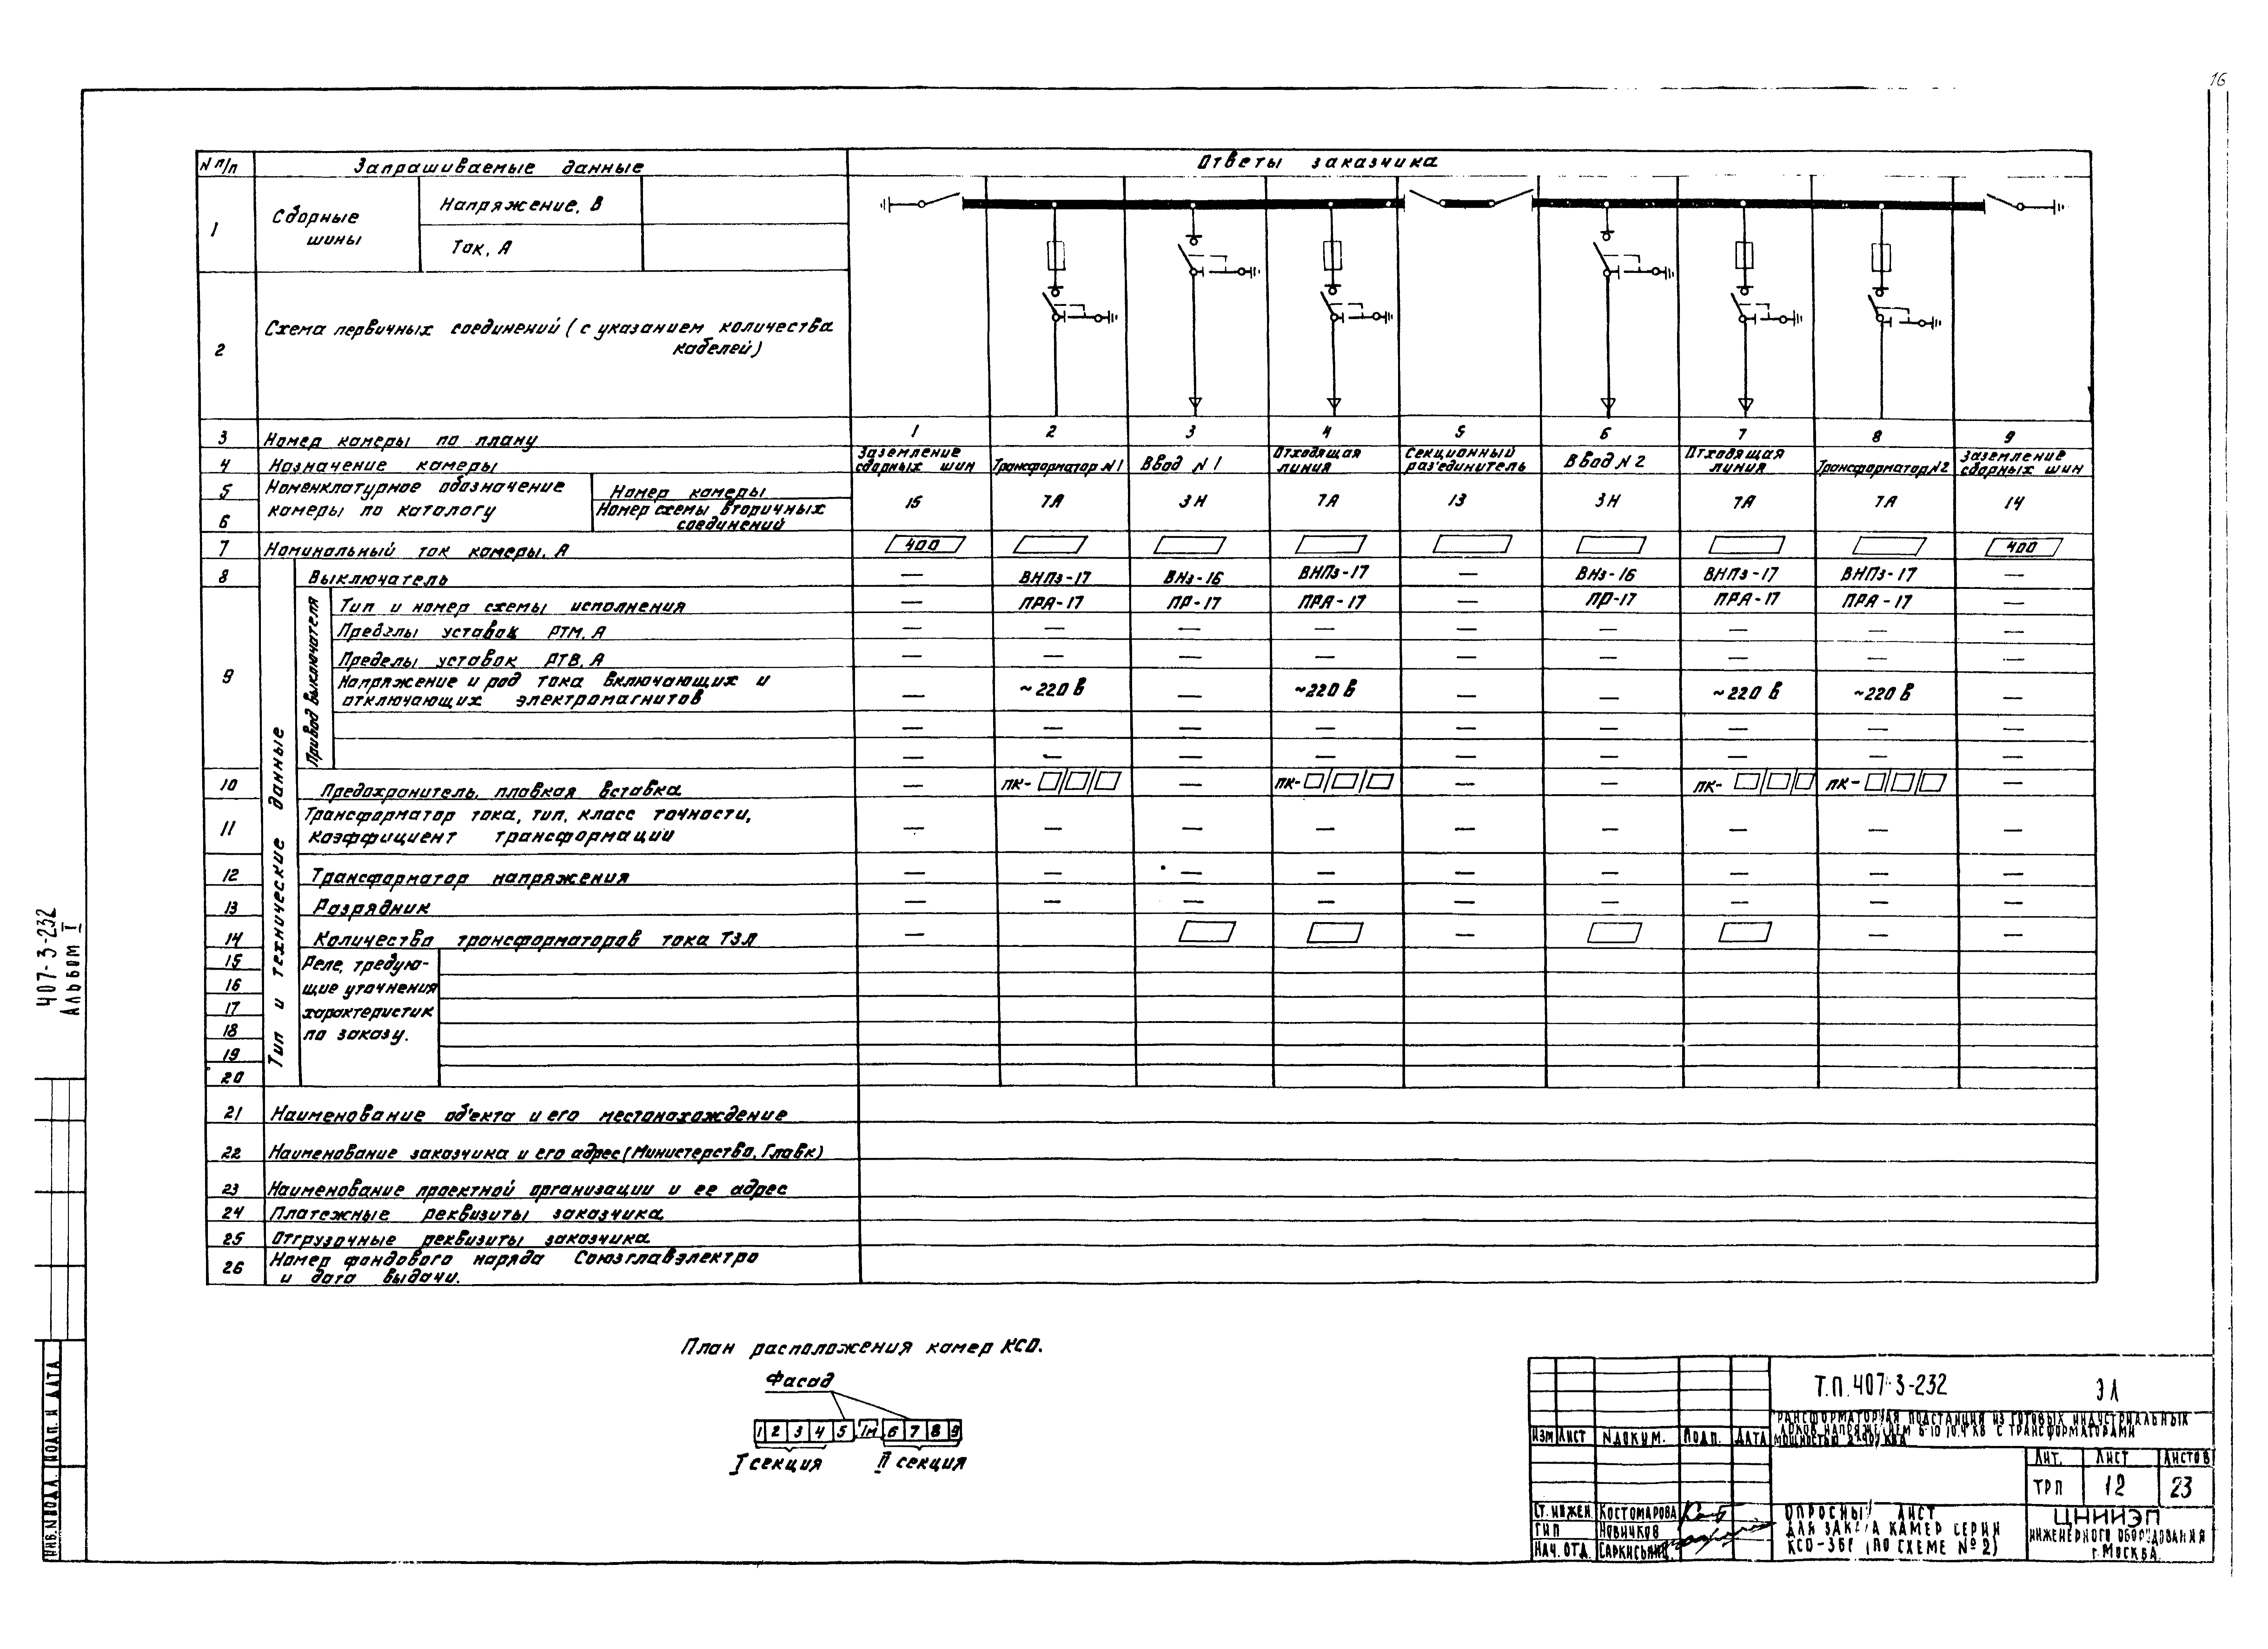 16
N п/п Запрашиваемые данные Ответы заказчика
1 Сборные шины Напряжение, В
Ток, А
2 Схема первичных соединений (с указанием количества
кабелей)
3 Номер камеры по плану 1 2 3 4 5 6 7 8 9
4 Назначение камеры Заземление сборных шин Трансформатор N1 Ввод N1 Отходящая линия Секционный раз'единитель Ввод N2 Отходящая линия Трансформатор N2 Заземление сборных шин
5 Номенклатурное обозначение камеры по каталогу Номер камеры 15 7А 3Н 7А 13 3Н 7А 7А 14
6 Номер схемы вторичных соединений
7 Номинальный ток камеры, А 400 400
Тип и технические данные
8 Выключатель — ВНПз-17 ВНз-16 ВНПз-17 — ВНз-16 ВНПз-17 ВНПз-17 —
9 Привод выключателя
Тип и номер схемы исполнения — ПРА-17 ПР-17 ПРА-17 — ПР-17 ПРА-17 ПРА-17 —
Пределы уставок РТМ, А — — — — — — — — —
Пределы уставок РТВ, А — — — — — — — — —
Напряжение и род тока включающих и
отключающих электромагнитов — ~220 В — ~220 В — — ~220 В ~220 В —
— — — — — — — — —
— — — — — — — — —
10 Предохранитель, плавкая вставка — ПК- — ПК- — — ПК- ПК- —
11 Трансформатор тока, тип, класс точности,
коэффициент трансформации — — — — — — — — —
12 Трансформатор напряжения — — — — — — — — —
13 Разрядник — — — — — — — — —
14 Количества трансформаторов тока ТЗЛ — — — —
15 Реле, требую-
16 щие уточнения
17 характеристик
18 по заказу.
19
20
21 Наименование об'екта и его местонахождение
22 Наименование заказчика и его адрес (Министерство, Главк)
23 Наименование проектной организации и ее адрес
24 Платежные реквизиты заказчика
25 Отгрузочные реквизиты заказчика
26 Номер фондового наряда Союзглавэлектро
и дата выдачи.
План расположения камер КСО.
Фасад
1 2 3 4 5 1м 6 7 8 9
I секция II секция
407-3-232
Альбом I
ИНВ. N ПОДЛ. ПОДП. И ДАТА
Т.П. 407-3-232 ЭЛ
ТРАНСФОРМАТОРНАЯ ПОДСТАНЦИЯ ИЗ ГОТОВЫХ ИНДУСТРИАЛЬНЫХ
НАПРЯЖЕНИЕМ 6-10/0.4 КВ С ТРАНСФОРМАТОРАМИ
МОЩНОСТЬЮ
ИЗМ ЛИСТ N ДОКУМ. ПОДП. ДАТА
ЛИТ. ЛИСТ ЛИСТОВ
ТРП 12 23
СТ. ИНЖЕН. КОСТОМАРОВА
ГИП НОВИЧКОВ
НАЧ. ОТД. САРКИСЬЯНС
ОПРОСНЫЙ ЛИСТ
ДЛЯ ЗАКАЗА КАМЕР СЕРИИ
КСО-366 (ПО СХЕМЕ №2)
ЦНИИЭП
ИНЖЕНЕРНОГО ОБОРУДОВАНИЯ
г. МОСКВА